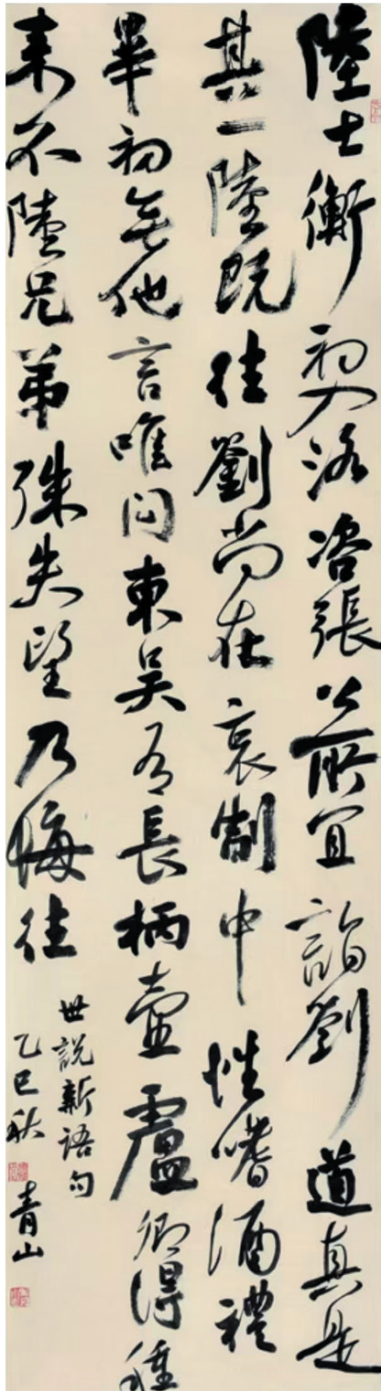 陸士衡初入洛咨張公所宜詣劉道真是
其一陸既往劉尚在哀制中性嗜酒禮
畢初無他言唯问東吴有長柄壷盧卿得種
来不陸兄弟殊失望乃悔往
世說新語句
乙巳秋
青山